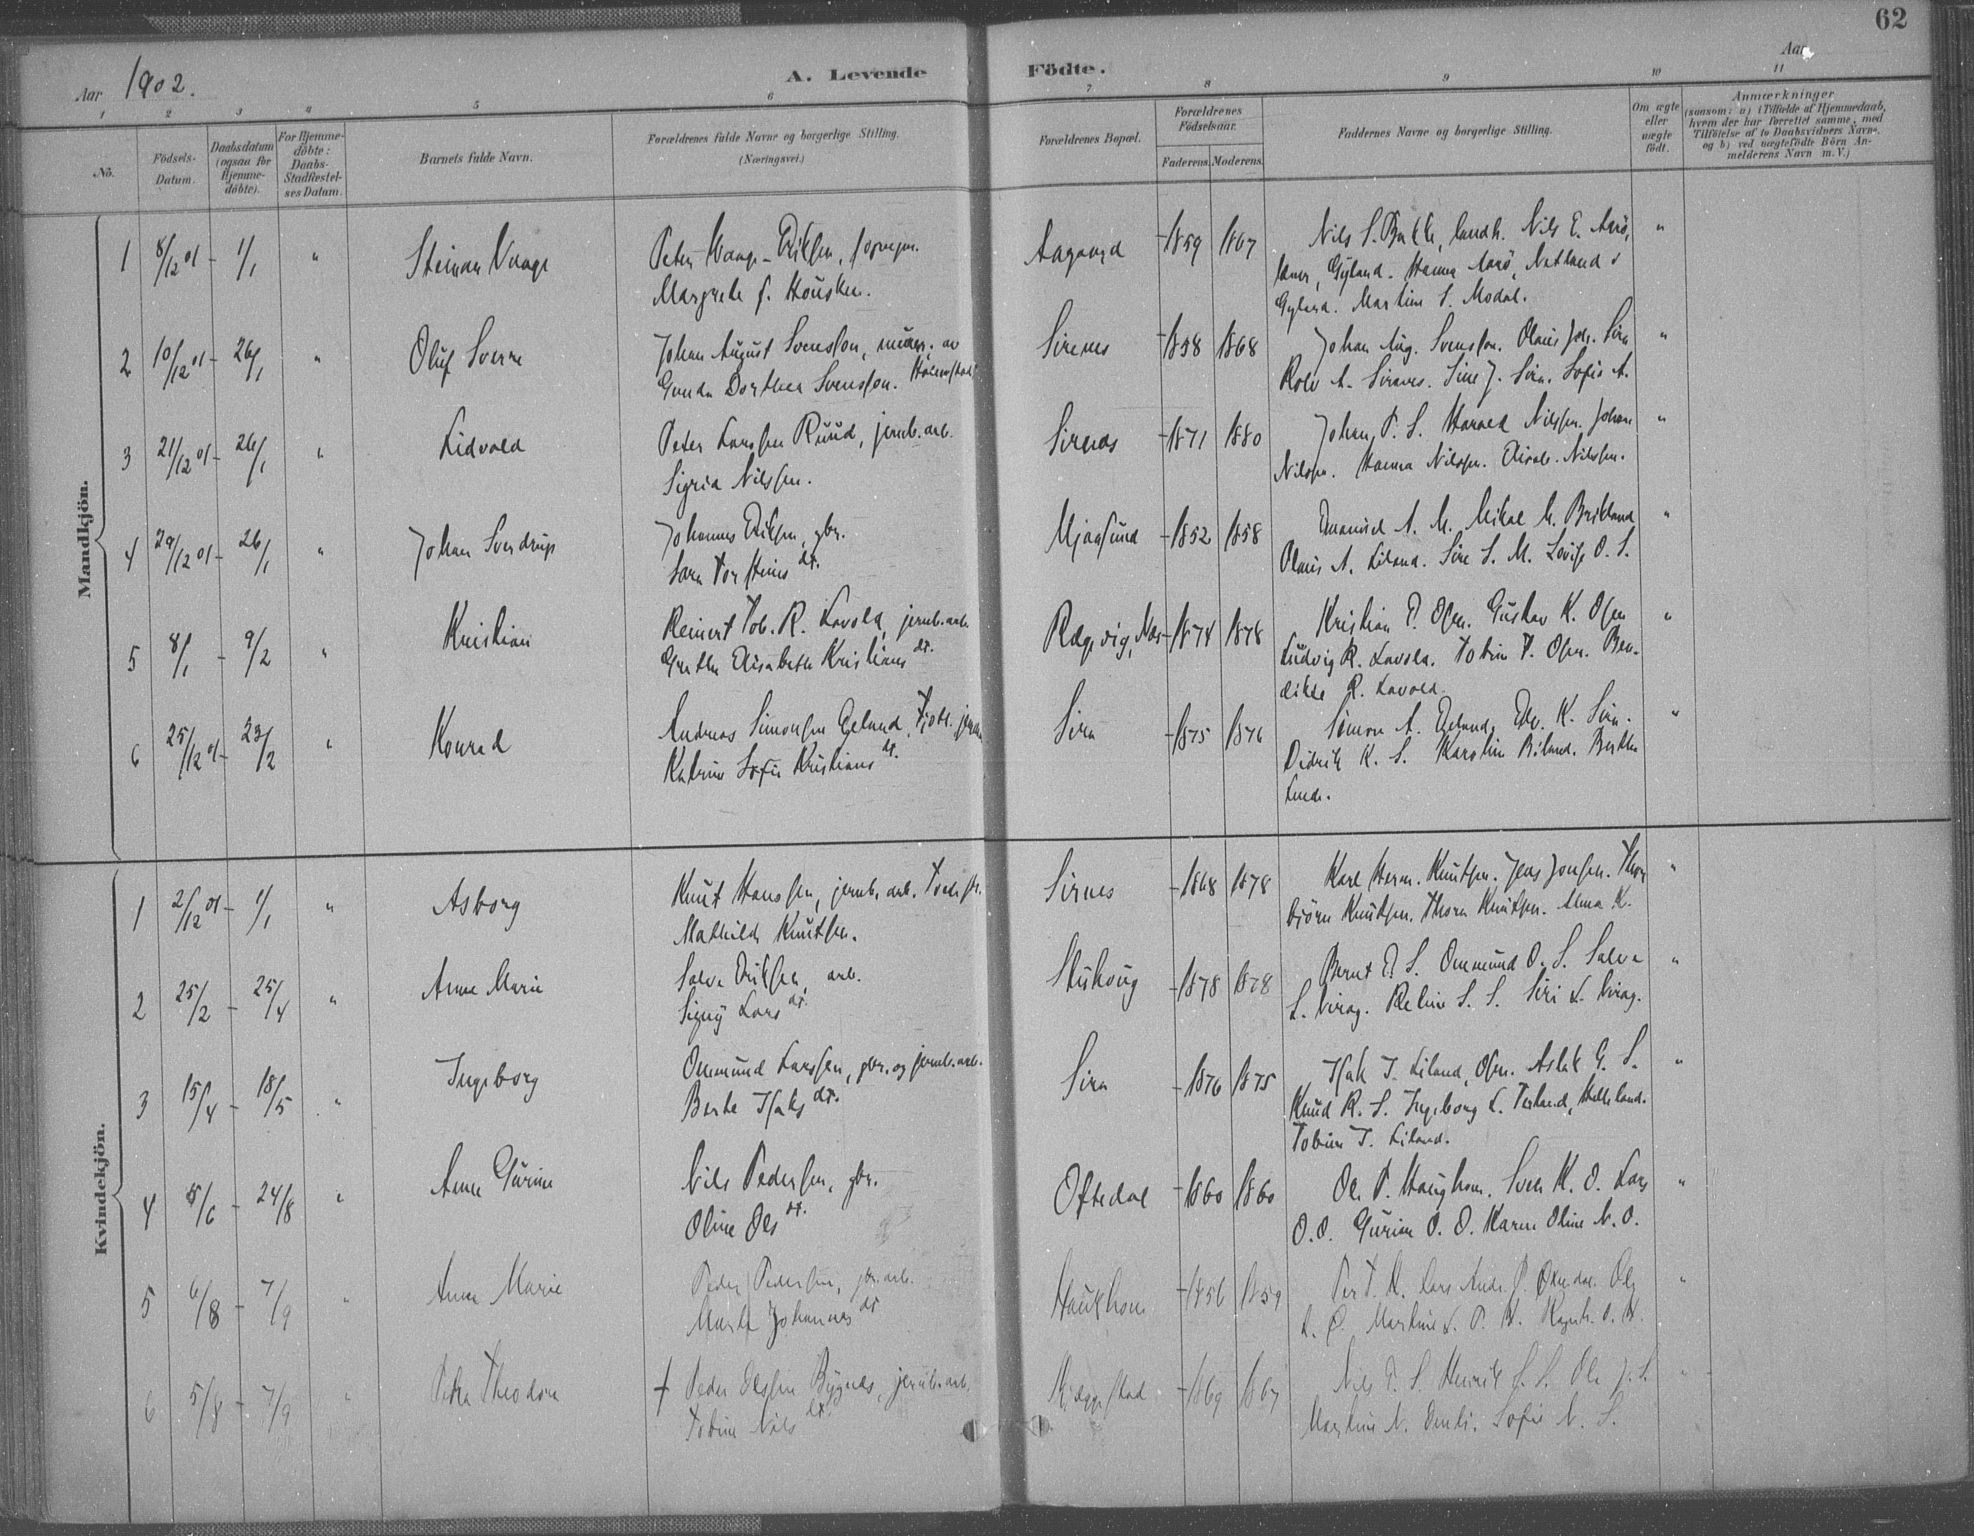 62
Aar 1902.
A. Levende Födte.
Aar
1 2 3 4 5 6 7 8 9 10 11
Nö.
Födsels-Datum.
Daabsdatum (ogsaa for Hjemme-döbte).
For Hjemme-döbte: Daabs-Stadfæstel-ses Datum.
Barnets fulde Navn.
Forældrenes fulde Navne og borgerlige Stilling.
(Næringsvei.)
Forældrenes Bopæl.
Forældrenes Födselsaar.
Faderens. Moderens.
Faddernes Navne og borgerlige Stilling.
Om ægte eller uægte födt.
Anmærkninger
(saasom: a) i Tilfælde af Hjemmedaab, hvem der har forrettet samme, med Tilföielse af to Daabsvidners Navne, og b) ved uægtefödte Börn Anmelderens Navn m. V.)
Mandkjön.
1 8/12 01 - 1/1 " Steinar Vaage
Margrete J. Housken.
Aagaard 1859 1867
Gyland. Hanna Aarö, Netland
Martine S. Modal.
2 10/12 01 26/1 " Oluf Sverre
Johan August Svensson,
Gunda Dorthea Svensson.
Sirenes 1858 1868
Johan Aug. Svensson. Olaus Joh. Sira
Rolv A. Sirenes. Sine J. Sira. Sofie A.
3 21/12 01 - 26/1 " Lidvald
Peter Larssen Ruud, jernb.arb.
Sigrid Nilssen.
Sirenes 1871 1880
Johan P. S. Harald Nilssen. Johan
Nilssen. Hanna Nilssen. Nilssen.
4 29/12 01 - 26/1 " Johan Sverdrup
Johannes Eriksen, gbr.
Sara Torsteins dt.
Mjaasund 1852 1858
Emanuel A. M. Mikal M. Birkeland
Olaus A. Liland. Sire S. M. Lovise O. S.
5 8/1 - 9/2 " Kristian
Reinert Tob. R. Lavold, jernb.arb.
Grethe Elisabeth Kristians dt.
Rægevig, 1874 1878
Kristian P. Osen. Gustav K. Osen
Ludvig R. Lavold. Tobine T. Osen. Ben-
dikte R. Lavold.
6 25/12 01 - 23/2 " Konrad
Andreas Simonsen Egeland,
Katrine Sofie Kristians dt.
Sira 1875 1876
Simon A. Egeland, Edv. K. Sira.
Didrik K. S. Karoline Eiland. Berthe
Lunde.
Kvindekjön.
1 2/12 01 - 1/1 " Asborg
Knut Hanssen, jernb. arb.
Mathilde Knutsen.
Sirnes 1868 1878
Karl Herm. Knutsen. Jens Jonsen. Thor
björn Knutsen. Thora Knutsen. Anna K.
2 25/2 - 25/4 " Anne Marie
Salve Eriksen, arb.
Signy Lars dt.
1878 1878
Bernt E. S. Ommund O. S. Salve
S. Virag. Reline S. S. Siri L. Virag.
3 15/4 - 18/5 " Ingeborg
Ommund Larssen, gbr. og jernb.arb.
Berte Isaks dt.
Sira 1876 1875
Isak T. Liland, Osen. Aslak G. S.
Knud R. S. Ingeborg L. Helleland.
Tobine T. Liland.
4 5/6 - 24/8 " Anne Gurine
Nils Pedersen, gbr.
Oline Ols dt.
Oftedal 1860 1860
Ole P. Haughom. Sven K. O. Lars
O. O. Gurine O. O. Karen Oline N. O.
5 6/8 - 7/9 " Anna Marie
Peder Pedersen,
Marte Johannes dt.
Haukhom 1856 1859
6 5/8 - 7/9 " Petra Theodora
† Peder Olssen Bygnes, jernb.arb.
Tobine Nils dt.
1869 1867
Nils E. S. Henrik S. S. Ole J. S.
Martine N. Sofie N. S.